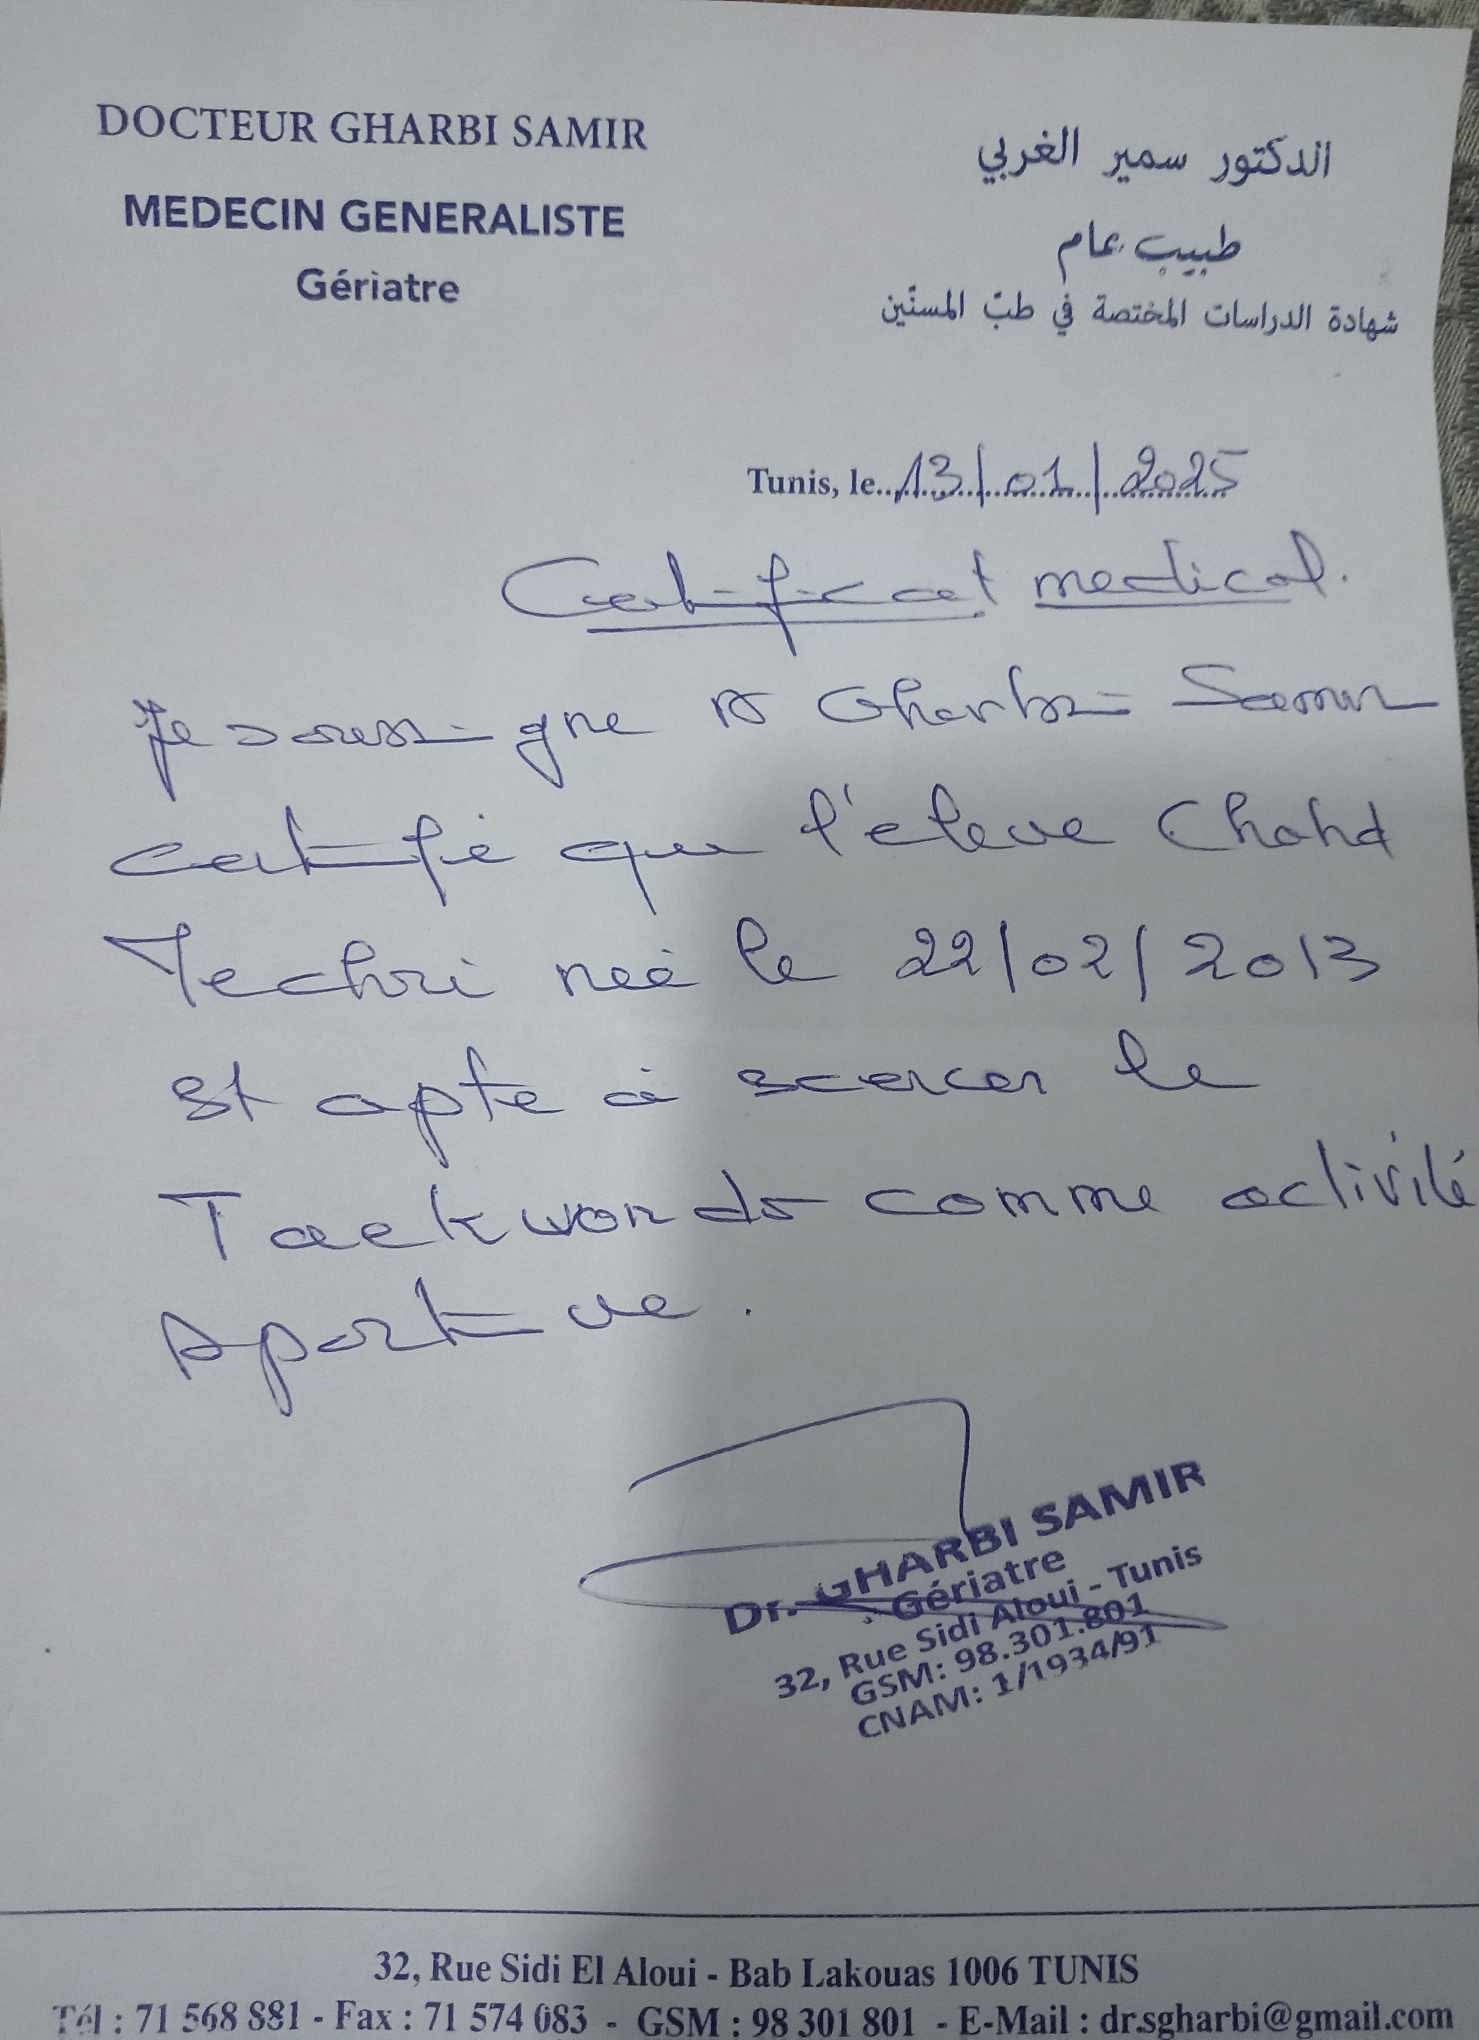 DOCTEUR GHARBI SAMIR
MEDECIN GENERALISTE
Gériatre
الدكتور سمير الغربي
طبيب عام
شهادة الدراسات المختصة في طبّ المسنّين
Tunis, le 13/01/2025
Certificat medical.
Je soussigne Dr Gharbi Samir
certifie que l'eleve Chahd
Techri née le 22/02/2013
est apte à exercer le
Taekwondo comme activité
sportive.
Dr. GHARBI SAMIR
Gériatre
32, Rue Sidi Aloui - Tunis
GSM: 98.301.801
CNAM: 1/1934/91
32, Rue Sidi El Aloui - Bab Lakouas 1006 TUNIS
Tél : 71 568 881 - Fax : 71 574 083 - GSM : 98 301 801 - E-Mail : dr.sgharbi@gmail.com